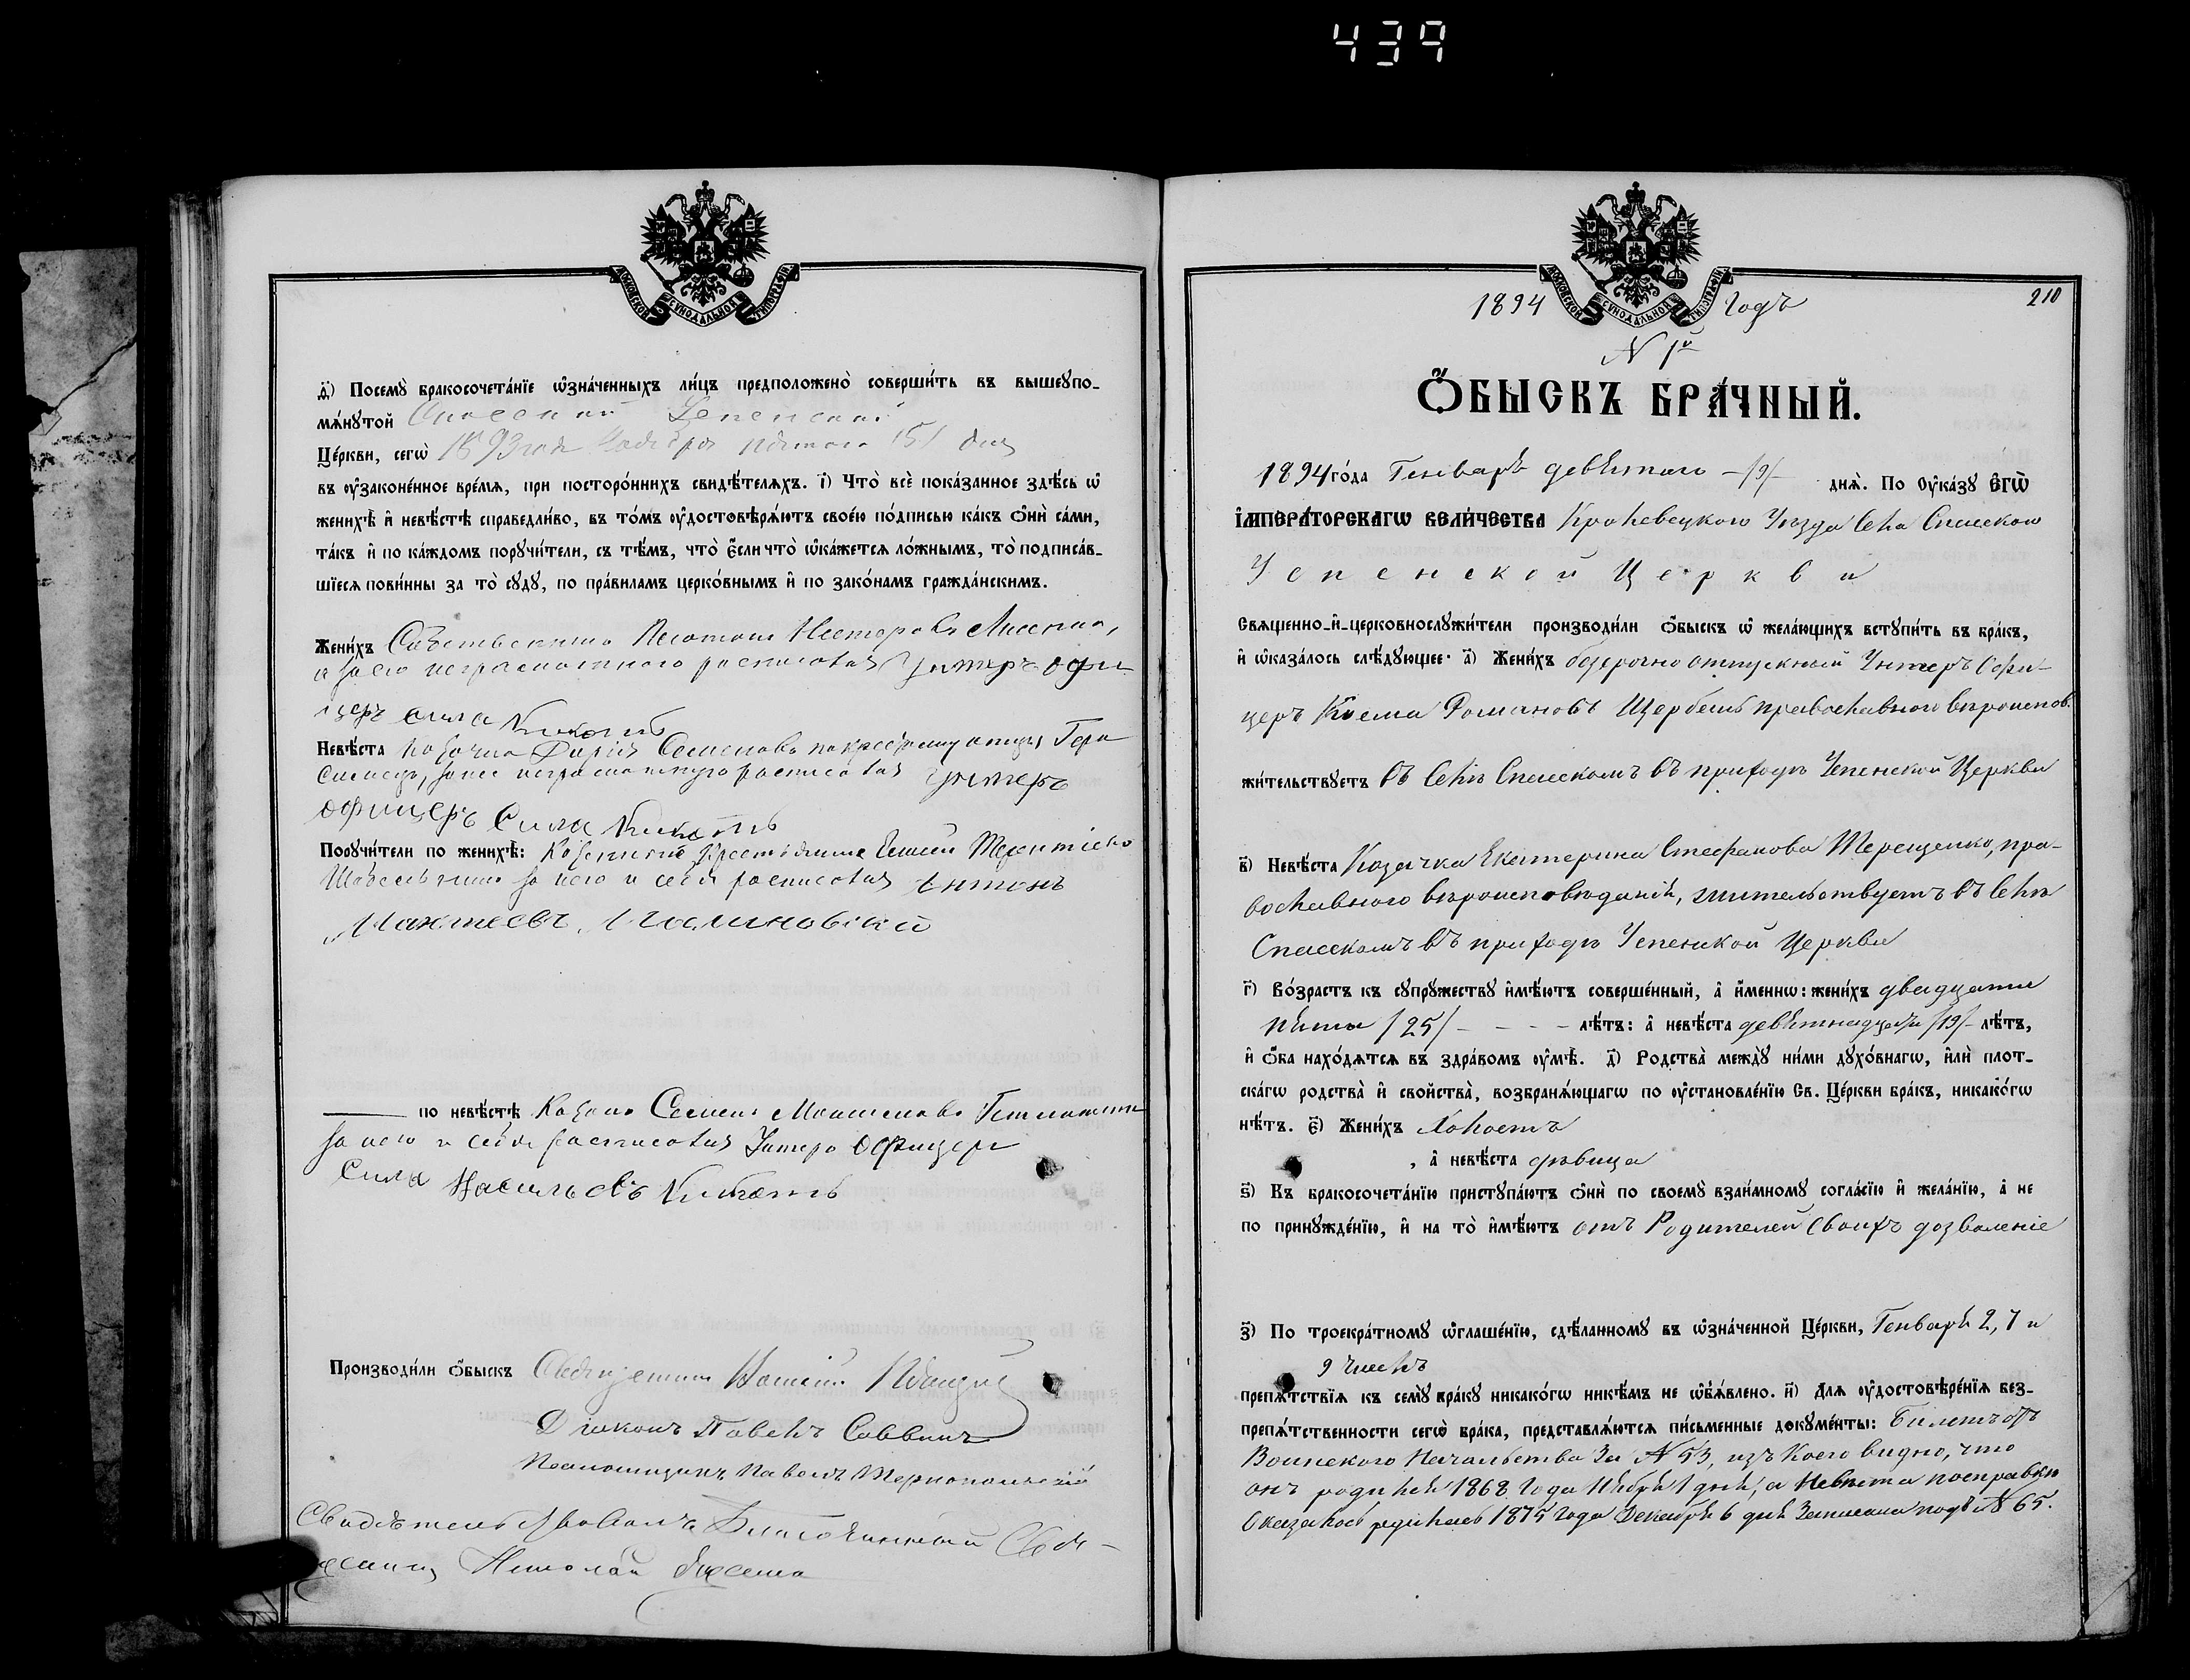 439
МОСКОВСКОЙ СѴНОДАЛЬНОЙ ТИПОГРАФІИ
д҃) Посемꙋ̀ бракосочета́нїе ѡ҆зна́ченныхъ ли́цъ предположено̀ соверши́ть въ вышеꙋпо-
мѧ́нꙋтой Спасской Успенской
Це́ркви, сегѡ̀ 1893 года Ноября пятого /5/ дня
въ ᲂу҆законе́нное вре́мѧ, при посторо́ннихъ свидѣ́телѧхъ. і҃) Что̀ всѐ пока́занное здѣ́сь ѡ҆
женихѣ̀ и҆ невѣ́стѣ справедли́во, въ то́мъ ᲂу҆достовѣрѧ́ютъ свое́ю по́дписью ка́къ ѻ҆нѝ са́ми,
та́къ и҆ по ка́ждомъ порꙋчи́тели, съ тѣ́мъ, что̀ є҆́сли что̀ ѡ҆ка́жетсѧ ло́жнымъ, то̀ подписа́в-
шїесѧ пови́нны за то̀ сꙋдꙋ̀, по пра́виламъ церко́внымъ и҆ по зако́намъ гражда́нскимъ.
Жени́хъ Собственникъ Нестеровъ Лисенко,
а за его неграмотного росписался Унтеръ офи
церъ Сила Кикоть
Невѣ́ста Козачка Дарія Семенова
за нее неграмотную росписался Унтеръ
офицеръ Сила Кикоть
Порꙋчи́тели по женихѣ̀: Казенный Крестьянинъ
за него и себя росписался Антонъ
по невѣ́стѣ Козакъ Семенъ
за него и себя росписался Унтеръ Офицеръ
Сила Васильевъ Кикоть
Производи́ли ѻ҆́быскъ Священникъ
Діяконъ Павелъ Саввинъ
Псаломщикъ Павелъ Тернопольскій
Благочинный Свя-
щенникъ Николай
1894 Годъ
210
N 1й
МОСКОВСКОЙ СѴНОДАЛЬНОЙ ТИПОГРАФІИ
Ѻ҆́БЫСКЪ БРА́ЧНЫЙ.
1894 го́да Генваря девятого -/9/- днѧ̀. По ᲂу҆ка́зꙋ Є҆ГѠ̀
І҆МПЕРА́ТОРСКАГѠ ВЕЛИ́ЧЕСТВА Кролевецкого Уезда Села Спасского
Успенской Церкви
Свѧщенно-и҆-церковнослꙋжи́тели производи́ли ѻ҆́быскъ ѡ҆ жела́ющихъ встꙋпи́ть въ бра́къ,
и҆ ѡ҆каза́лось слѣ́дꙋющее: а҃) Жени́хъ безсрочно отпускный Унтеръ Офи-
церъ Косма Романовъ Щербакъ православного вѣроисповѣ.
жи́тельствꙋетъ въ Селѣ Спасскомъ въ приходѣ Успенской Церкви
в҃) Невѣ́ста Козачка Екатерина Стефанова Терещенко, пра-
вославного вѣроисповѣданія, жительствуетъ въ Селѣ
Спасскомъ въ приходѣ Успенской Церкви
г҃) Во́зрастъ къ сꙋпрꙋ́жествꙋ и҆мѣ́ютъ соверше́нный, а҆ и҆́меннѡ: жени́хъ двадцати
пяти /25/ - - - - лѣ́тъ: а҆ невѣ́ста девятнадцати /19/- лѣ́тъ,
и҆ ѻ҆́ба нахо́дѧтсѧ въ здра́вомъ ᲂу҆мѣ̀. д҃) Родства̀ междꙋ̀ ни́ми дꙋхо́внагѡ, и҆лѝ плот-
ска́гѡ родства̀ и҆ свойства̀, возбранѧ́ющагѡ по ᲂу҆становле́нїю Св. Це́ркви бра́къ, никако́гѡ
нѣ́тъ. є҃) Жени́хъ Холостъ
, а҆ невѣ́ста дѣвица
ѕ҃) Къ бракосочета́нїю пристꙋпа́ютъ ѻ҆нѝ по своемꙋ̀ взаи́мномꙋ согла́сїю и҆ жела́нїю, а҆ не
по принꙋжде́нїю, и҆ на то̀ и҆мѣ́ютъ отъ Родителей своихъ дозволеніе
з҃) По троекра́тномꙋ ѡ҆глаше́нїю, сдѣ́ланномꙋ въ ѡ҆зна́ченной Це́ркви, Генваря 2, 7 и
9 числъ
препѧ́тствїѧ къ семꙋ̀ бра́кꙋ никако́гѡ никѣ́мъ не ѡ҆б̾ѧ́влено. и҃) Длѧ ᲂу҆достовѣре́нїѧ без-
препѧ́тственности сегѡ̀ бра́ка, представлѧ́ютсѧ пи́сьменные докꙋме́нты: Билетъ отъ
Воинского Начальства За N 53, изъ коего видно, что
онъ родился 1868 Года Ноября 1 дня, а Невѣста по справкѣ
Оказалось родилась 1875 Года Декабря 6 дня Записана подъ N 65.